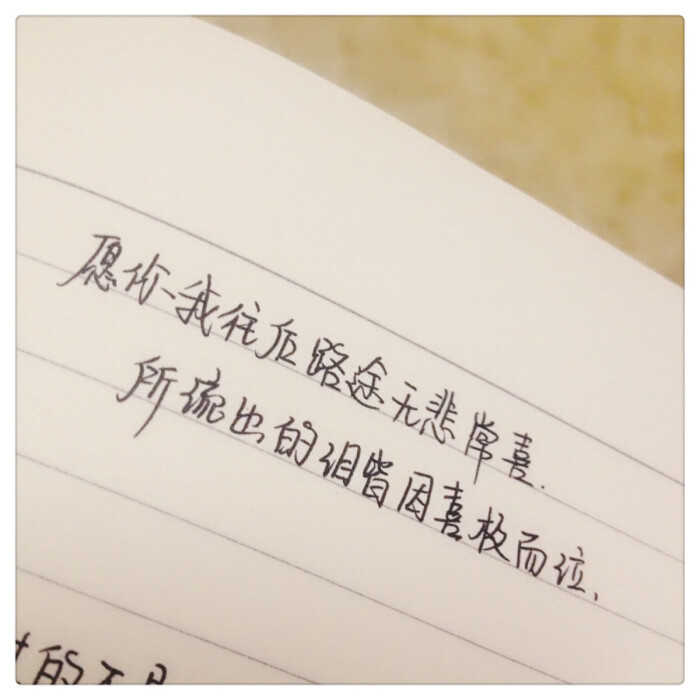 愿你、我往后路途无悲常喜.
所流出的泪皆因喜极而泣.
的不是